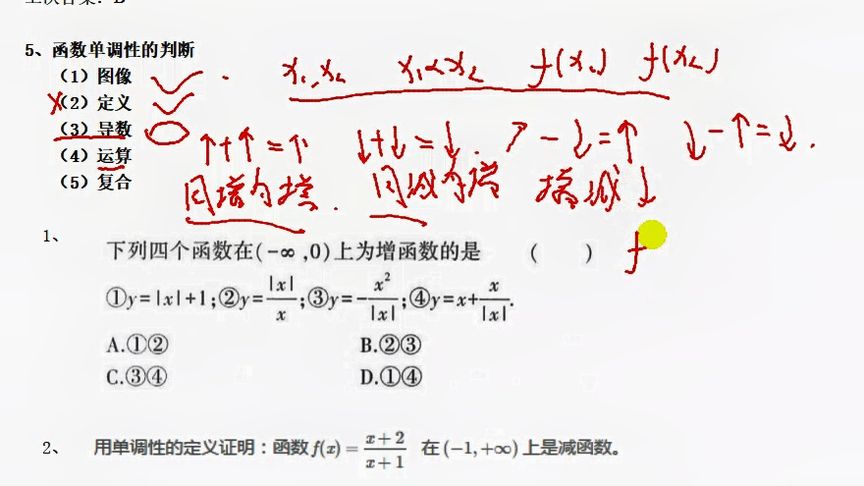 5、函数单调性的判断
（1）图像
（2）定义
（3）导数
（4）运算
（5）复合
x₁,x₂ x₁<x₂ f(x₁) f(x₂)
↑+↑=↑ ↓+↓=↓. ↗-↓=↑ ↓-↑=↓.
同增为增. 同减为增 增减↓
f
1、
下列四个函数在(-∞,0)上为增函数的是 （ ）
①y=|x|+1;②y=|x|/x;③y=-x²/|x|;④y=x+x/|x|.
A.①② B.②③
C.③④ D.①④
2、 用单调性的定义证明：函数f(x)=x+2/x+1 在(-1,+∞)上是减函数。